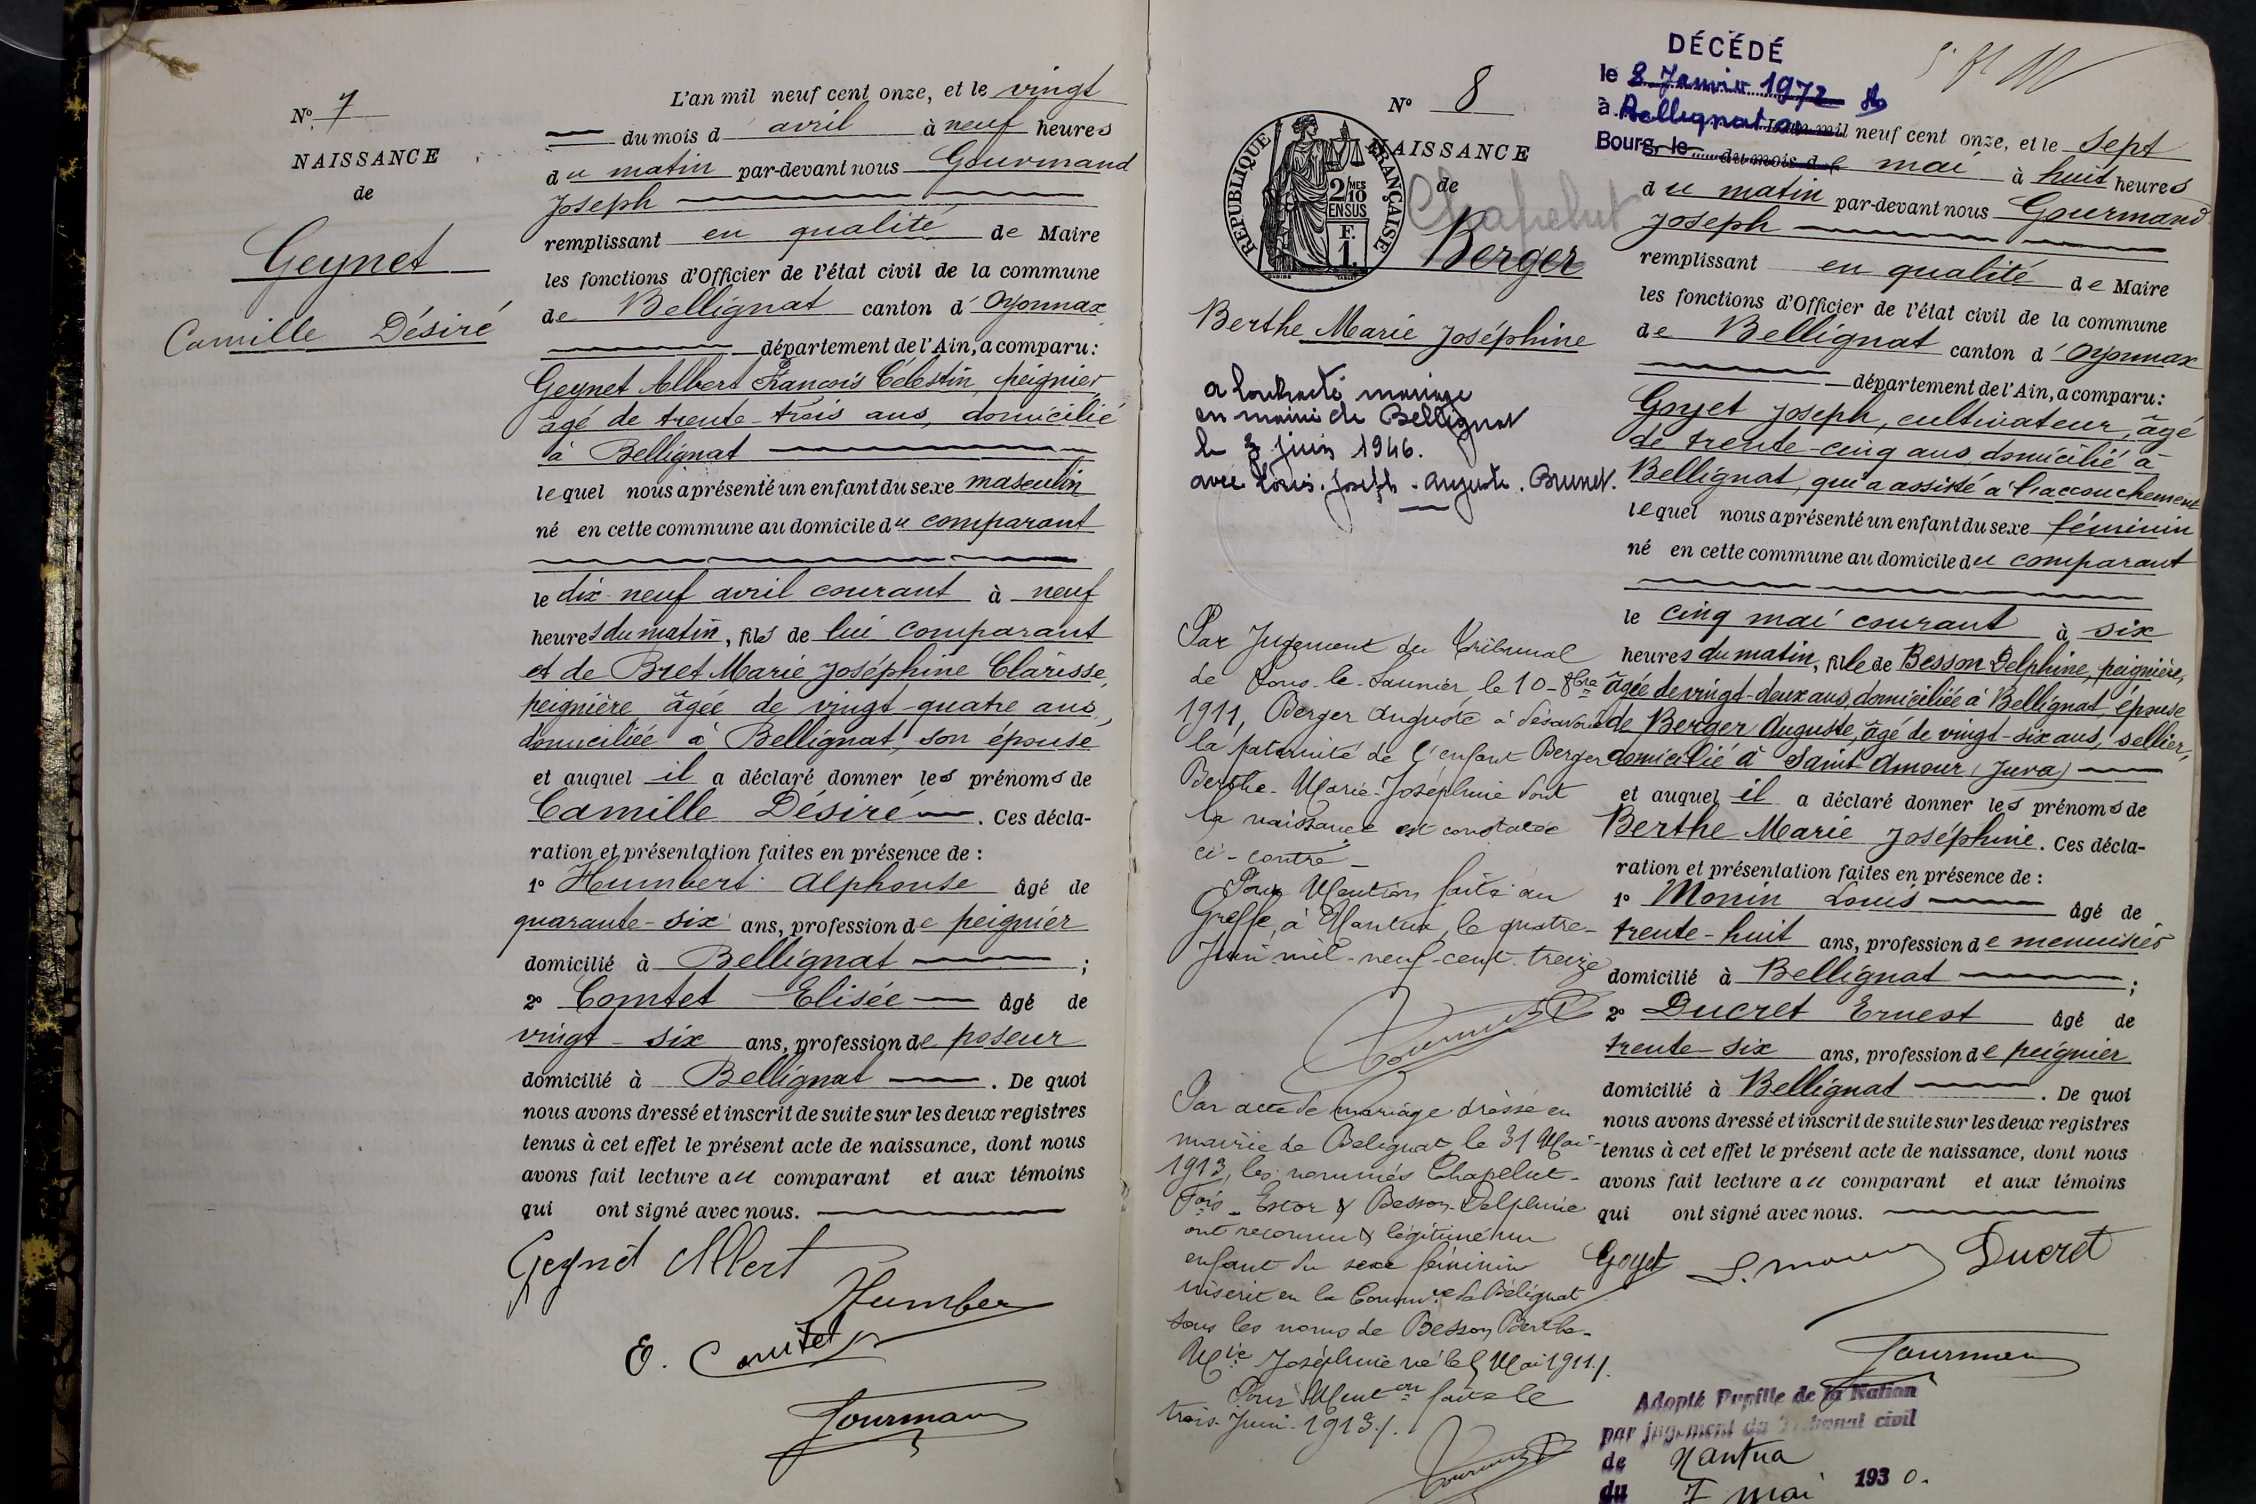 N° 7
NAISSANCE
de
Geynet
Camille Désiré
L'an mil neuf cent onze, et le vingt
du mois d avril à neuf heures
du matin par-devant nous Gourmand
Joseph
remplissant en qualité de Maire
les fonctions d'Officier de l'état civil de la commune
de Bellignat canton d'Oyonnax
département de l'Ain, a comparu :
Geynet Albert François Célestin, peignier,
âgé de trente-trois ans, domicilié
à Bellignat
lequel nous a présenté un enfant du sexe masculin
né en cette commune au domicile du comparant
le dix-neuf avril courant à neuf
heures du matin, fils de lui comparant
et de Bret Marie Joséphine Clarisse,
peignière âgée de vingt-quatre ans,
domiciliée à Bellignat, son épouse
et auquel il a déclaré donner les prénoms de
Camille Désiré. Ces décla-
ration et présentation faites en présence de :
1° Humbert Alphonse âgé de
quarante-six ans, profession de peignier
domicilié à Bellignat ;
2° Comtet Elisée âgé de
vingt-six ans, profession de poseur
domicilié à Bellignat. De quoi
nous avons dressé et inscrit de suite sur les deux registres
tenus à cet effet le présent acte de naissance, dont nous
avons fait lecture au comparant et aux témoins
qui ont signé avec nous.
Geynet Albert
Humber
E. Comtet
Gourman
N° 8
NAISSANCE
de
RÉPUBLIQUE FRANÇAISE
2/10MES
EN SUS
F.
1.
Chapelut
Berger
Berthe Marie Joséphine
a contracté mariage
en mairie de Bellignat
le 3 juin 1946.
avec Louis. Joseph. Auguste. Brunet.
Par Jugement du Tribunal
de Lons-le-Saunier, le 10-8bre
1911, Berger Auguste à désavoué
la paternité de l'enfant Berger
Berthe-Marie-Joséphine dont
la naissance est constatée
ci-contre
Pour Mention faite au
Greffe, à Nantua, le quatre-
Juin mil-neuf-cent-treize
Par acte de mariage dressé en
mairie de Belignat le 31 Mai-
1913, les nommés Chapelut-
& Besson Delphine
ont reconnu & légitimé un
enfant du sexe féminin
inscrit en la Commne de Bélignat
sous les noms de Besson Berthe-
Mie Joséphine né le 5 Mai 1911./.
Pour Mention faite le
trois Juin 1913./.
DÉCÉDÉ
le 8 Janvier 1972
à Bellignat
Bourg, le
L'an mil neuf cent onze, et le sept
du mois de mai à huit heures
du matin par-devant nous Gourmand
Joseph
remplissant en qualité de Maire
les fonctions d'Officier de l'état civil de la commune
de Bellignat canton d'Oyonnax
département de l'Ain, a comparu :
Goyet Joseph, cultivateur, âgé
de trente-cinq ans, domicilié à
Bellignat, qui a assisté à l'accouchement
lequel nous a présenté un enfant du sexe féminin
né en cette commune au domicile du comparant
le cinq mai courant à six
heures du matin, fille de Besson Delphine, peignière,
âgée de vingt-deux ans, domiciliée à Bellignat, épouse
de Berger Auguste, âgé de vingt-six ans, sellier,
domicilié à Saint-Amour (Jura)
et auquel il a déclaré donner les prénoms de
Berthe Marie Joséphine. Ces décla-
ration et présentation faites en présence de :
1° Monin Louis âgé de
trente-huit ans, profession de menuisier
domicilié à Bellignat ;
2° Ducret Ernest âgé de
trente-six ans, profession de peignier
domicilié à Bellignat. De quoi
nous avons dressé et inscrit de suite sur les deux registres
tenus à cet effet le présent acte de naissance, dont nous
avons fait lecture au comparant et aux témoins
qui ont signé avec nous.
Goyet L. Monin Ducret
Gourman
Adopté Pupille de la Nation
par jugement du Tribunal civil
de Nantua
du 7 mai 1930.